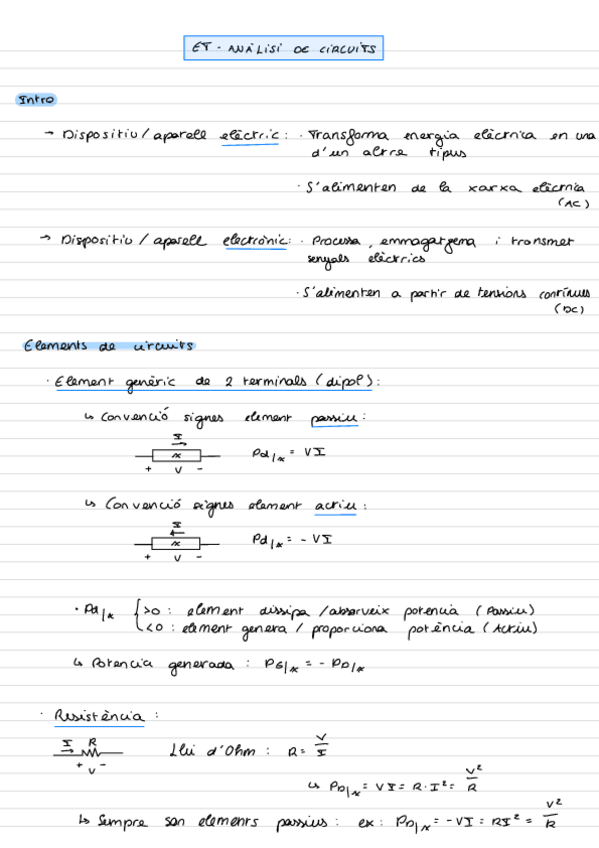 ET - ANÀLISI DE CIRCUITS
Intro
→ Dispositiu / aparell elèctric: · Transforma energia elèctrica en una
d'un altre tipus
· S'alimenten de la xarxa elèctrica
(AC)
→ Dispositiu / aparell electrònic: · Processa, emmagatzema i transmet
senyals elèctrics
· S'alimenten a partir de tensions contínues
(DC)
Elements de circuits
· Element genèric de 2 terminals (dipol):
↳ Convenció signes element passiu:
I
x
+ V -
Pd|x = VI
↳ Convenció signes element actiu:
I
x
+ V -
Pd|x = - VI
· Pd|x { >0 : element dissipa / absorveix potencia (Passiu)
<0 : element genera / proporciona potència (Actiu)
↳ Potencia generada : PG|x = - PD|x
· Resistència :
I R
+ V -
Llei d'Ohm : R = V/I
↳ PD|x = VI = R·I² = V²/R
↳ Sempre son elements passius : ex: PD|x = -VI = RI² = V²/R